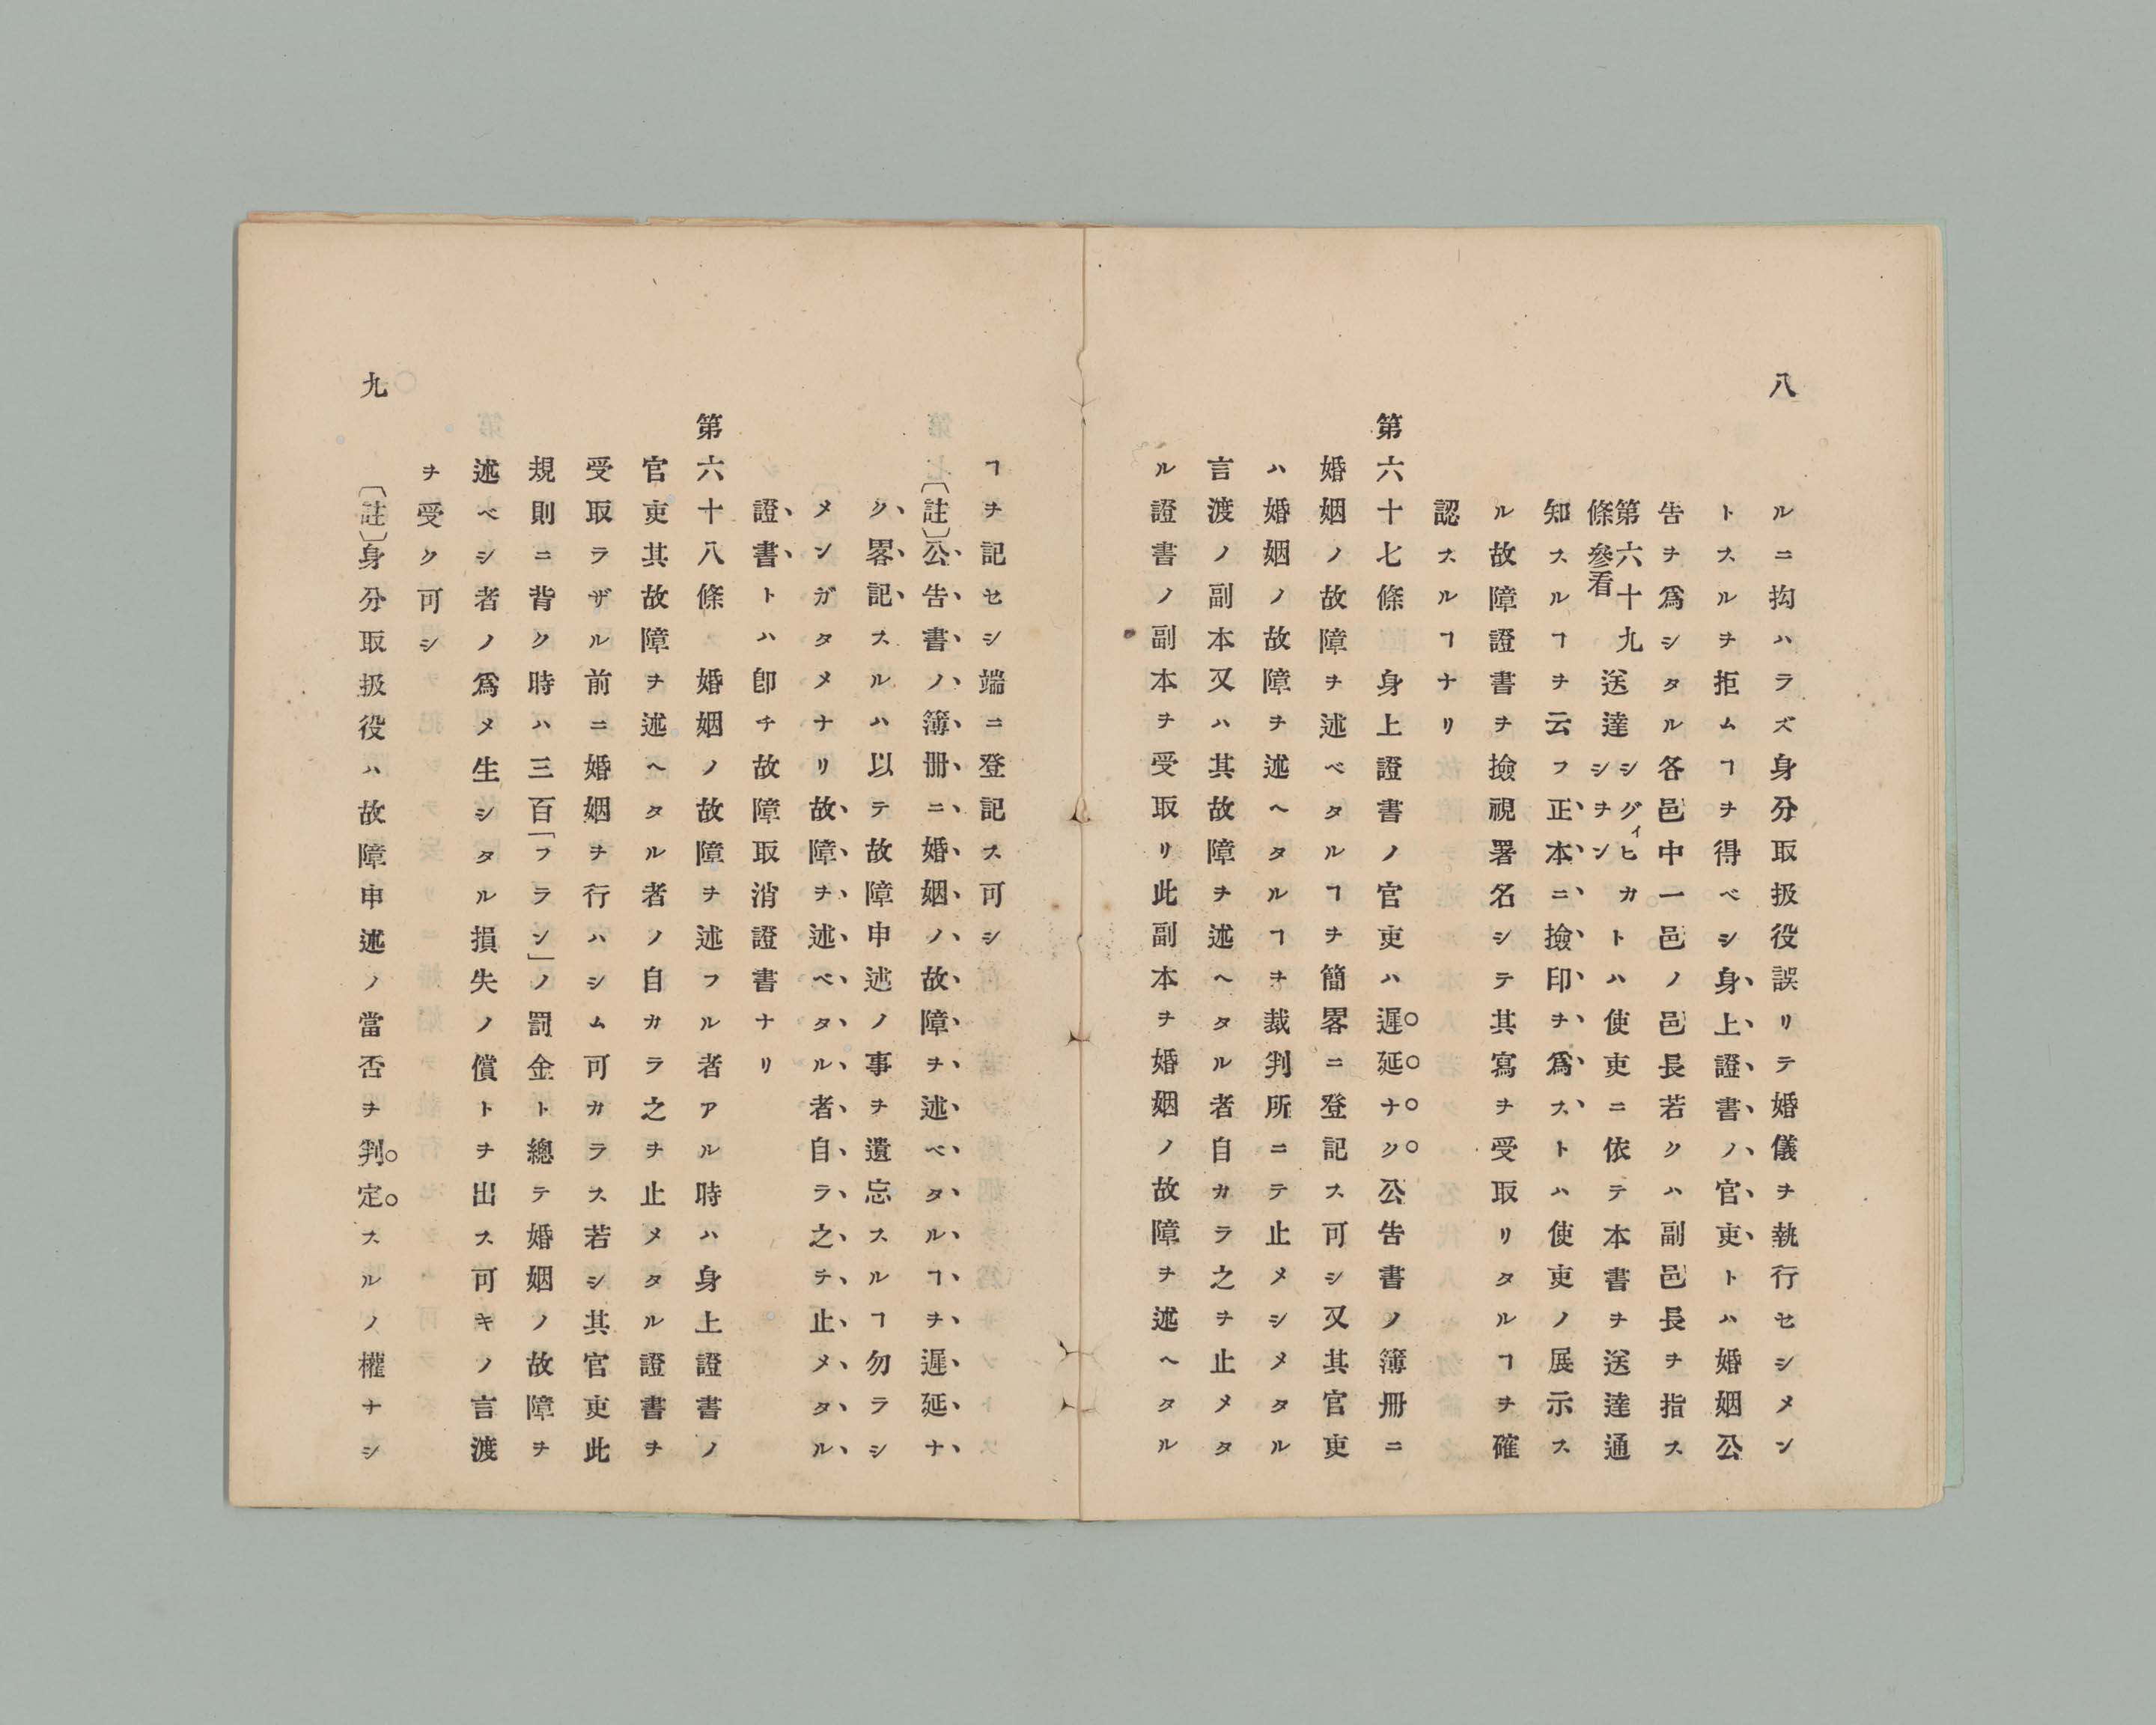 八
ルニ拘ハラズ身分取扱役誤リテ婚儀ヲ執行セシメン
トスルヲ拒ムヿヲ得ベシ身上證書ノ官吏トハ婚姻公
告ヲ爲シタル各邑中一邑ノ邑長若クハ副邑長ヲ指ス
第六十九條參看 送達シグニヒカシヲンィトハ使吏ニ依テ本書ヲ送達通
知スルヿヲ云フ正本ニ撿印ヲ爲ストハ使吏ノ展示ス
ル故障證書ヲ撿視署名シテ其寫ヲ受取リタルヿヲ確
認スルヿナリ
第六十七條 身上證書ノ官吏ハ遲延ナク公告書ノ簿册ニ
婚姻ノ故障ヲ述ベタルヿヲ簡畧ニ登記ス可シ又其官吏
ハ婚姻ノ故障ヲ述ヘタルヿヲ裁判所ニテ止メシメタル
言渡ノ副本又ハ其故障ヲ述ヘタル者自カラ之ヲ止メタ
ル證書ノ副本ヲ受取リ此副本ヲ婚姻ノ故障ヲ述ヘタル
ヿヲ記セシ端ニ登記ス可シ
〔註〕公告書ノ簿册ニ婚姻ノ故障ヲ述ベタルヿヲ遲延ナ
ク畧記スルハ以テ故障申述ノ事ヲ遺忘スルヿ勿ラシ
メンガタメナリ故障ヲ述ベタル者自ラ之ヲ止メタル
證書トハ卽チ故障取消證書ナリ
第六十八條 婚姻ノ故障ヲ述フル者アル時ハ身上證書ノ
官吏其故障ヲ述ヘタル者ノ自カラ之ヲ止メタル證書ヲ
受取ラザル前ニ婚姻ヲ行ハシム可カラス若シ其官吏此
規則ニ背ク時ハ三百「フラン」ノ罰金ト總テ婚姻ノ故障ヲ
述ベシ者ノ爲メ生シタル損失ノ償トヲ出ス可キノ言渡
ヲ受ク可シ
〔註〕身分取扱役ハ故障申述ノ當否ヲ判定スルノ權ナシ
九